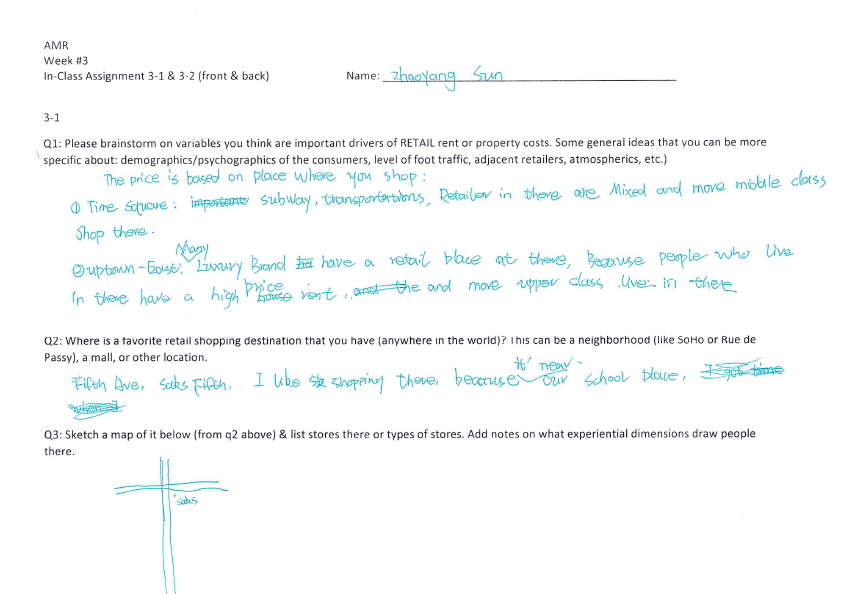 AMR
Week #3
In-Class Assignment 3-1 & 3-2 (front & back)
Name: Zhaoyang Sun
3-1
Q1: Please brainstorm on variables you think are important drivers of RETAIL rent or property costs. Some general ideas that you can be more
specific about: demographics/psychographics of the consumers, level of foot traffic, adjacent retailers, atmospherics, etc.)
The price is based on place where you shop:
① Time Square: subway, transportartions, Retailer in there are Mixed and more middle class
Shop there.
② uptown-East. Many Luxury Brand have a retail place at there, Because people who live
in there have a high price rent, and more upper class live in there
Q2: Where is a favorite retail shopping destination that you have (anywhere in the world)? This can be a neighborhood (like SoHo or Rue de
Passy), a mall, or other location.
Fifth Ave, Saks Fifth, I like shopping there, because it' near our school place,
Q3: Sketch a map of it below (from q2 above) & list stores there or types of stores. Add notes on what experiential dimensions draw people
there.
Saks